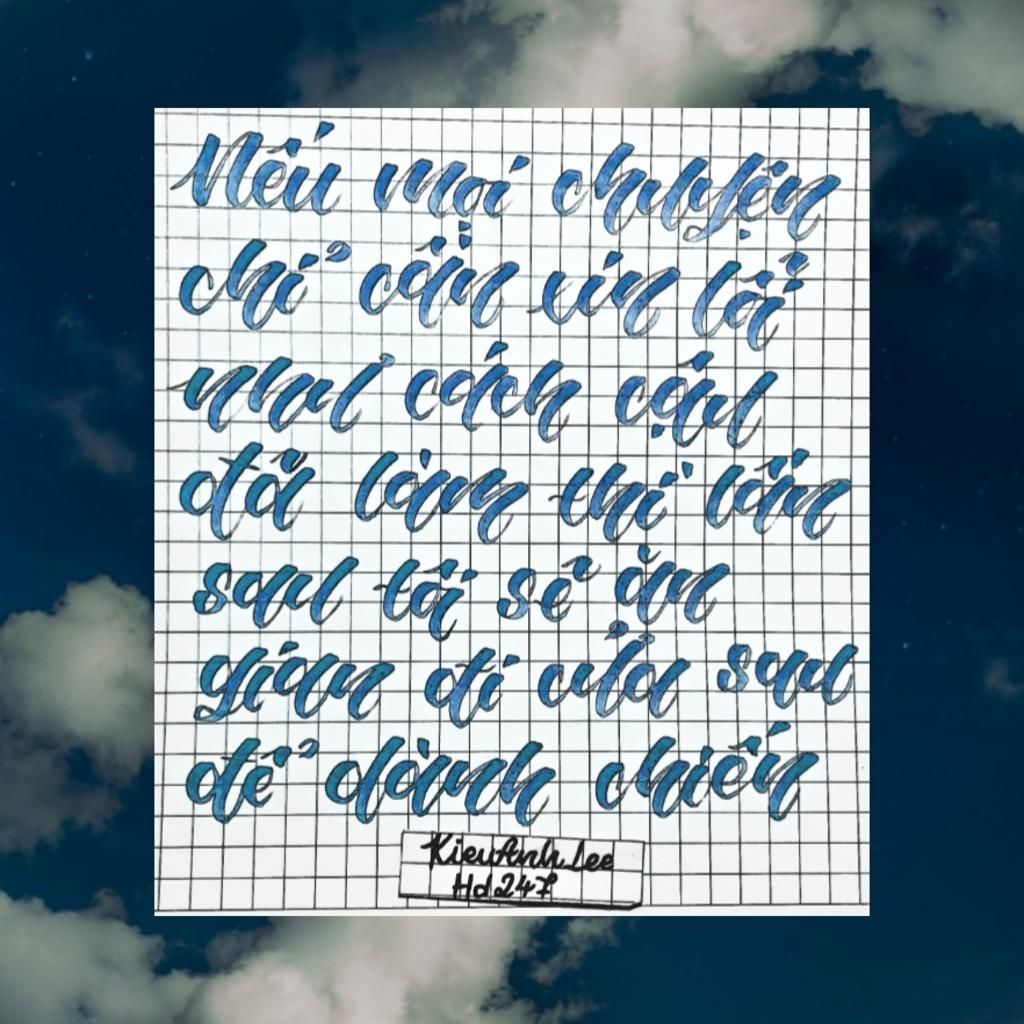 Nếu mọi chuyện
chỉ cần xin lỗi
như cách cậu
đã làm thì lần
sau tôi sẽ ăn
gian đi cửa sau
để dành chiến
KieuAnh Lee
Hd247